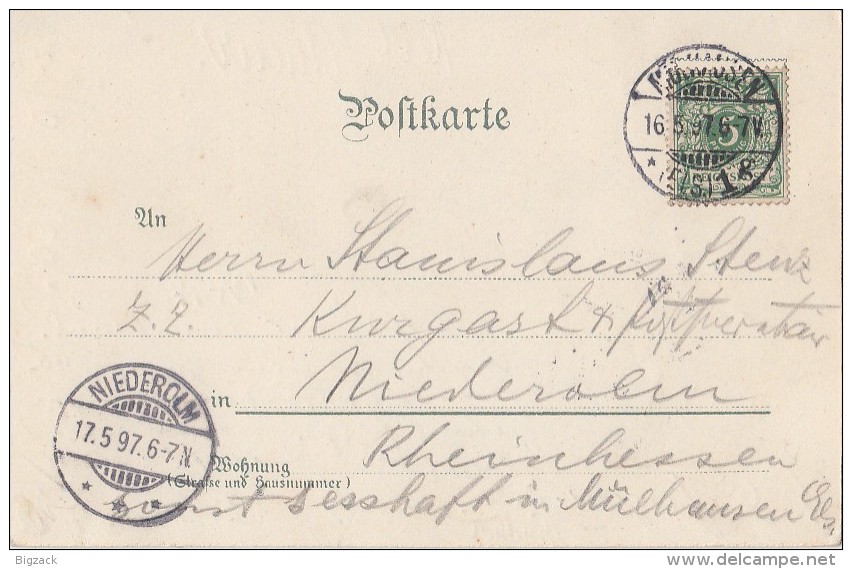 Postkarte
MÜLHAUSEN
16.5.97.6-7N.
(ELS) 1.
5
An
Herrn Stanislaus Stenz
z. Z. Kurgast &
in Niederolm
NIEDEROLM
17.5 97.6-7N.
Rheinhessen
Wohnung
(Straße und Hausnummer)
sonst sesshaft in Mülhausen Els.
Bigzack
delcampe.net